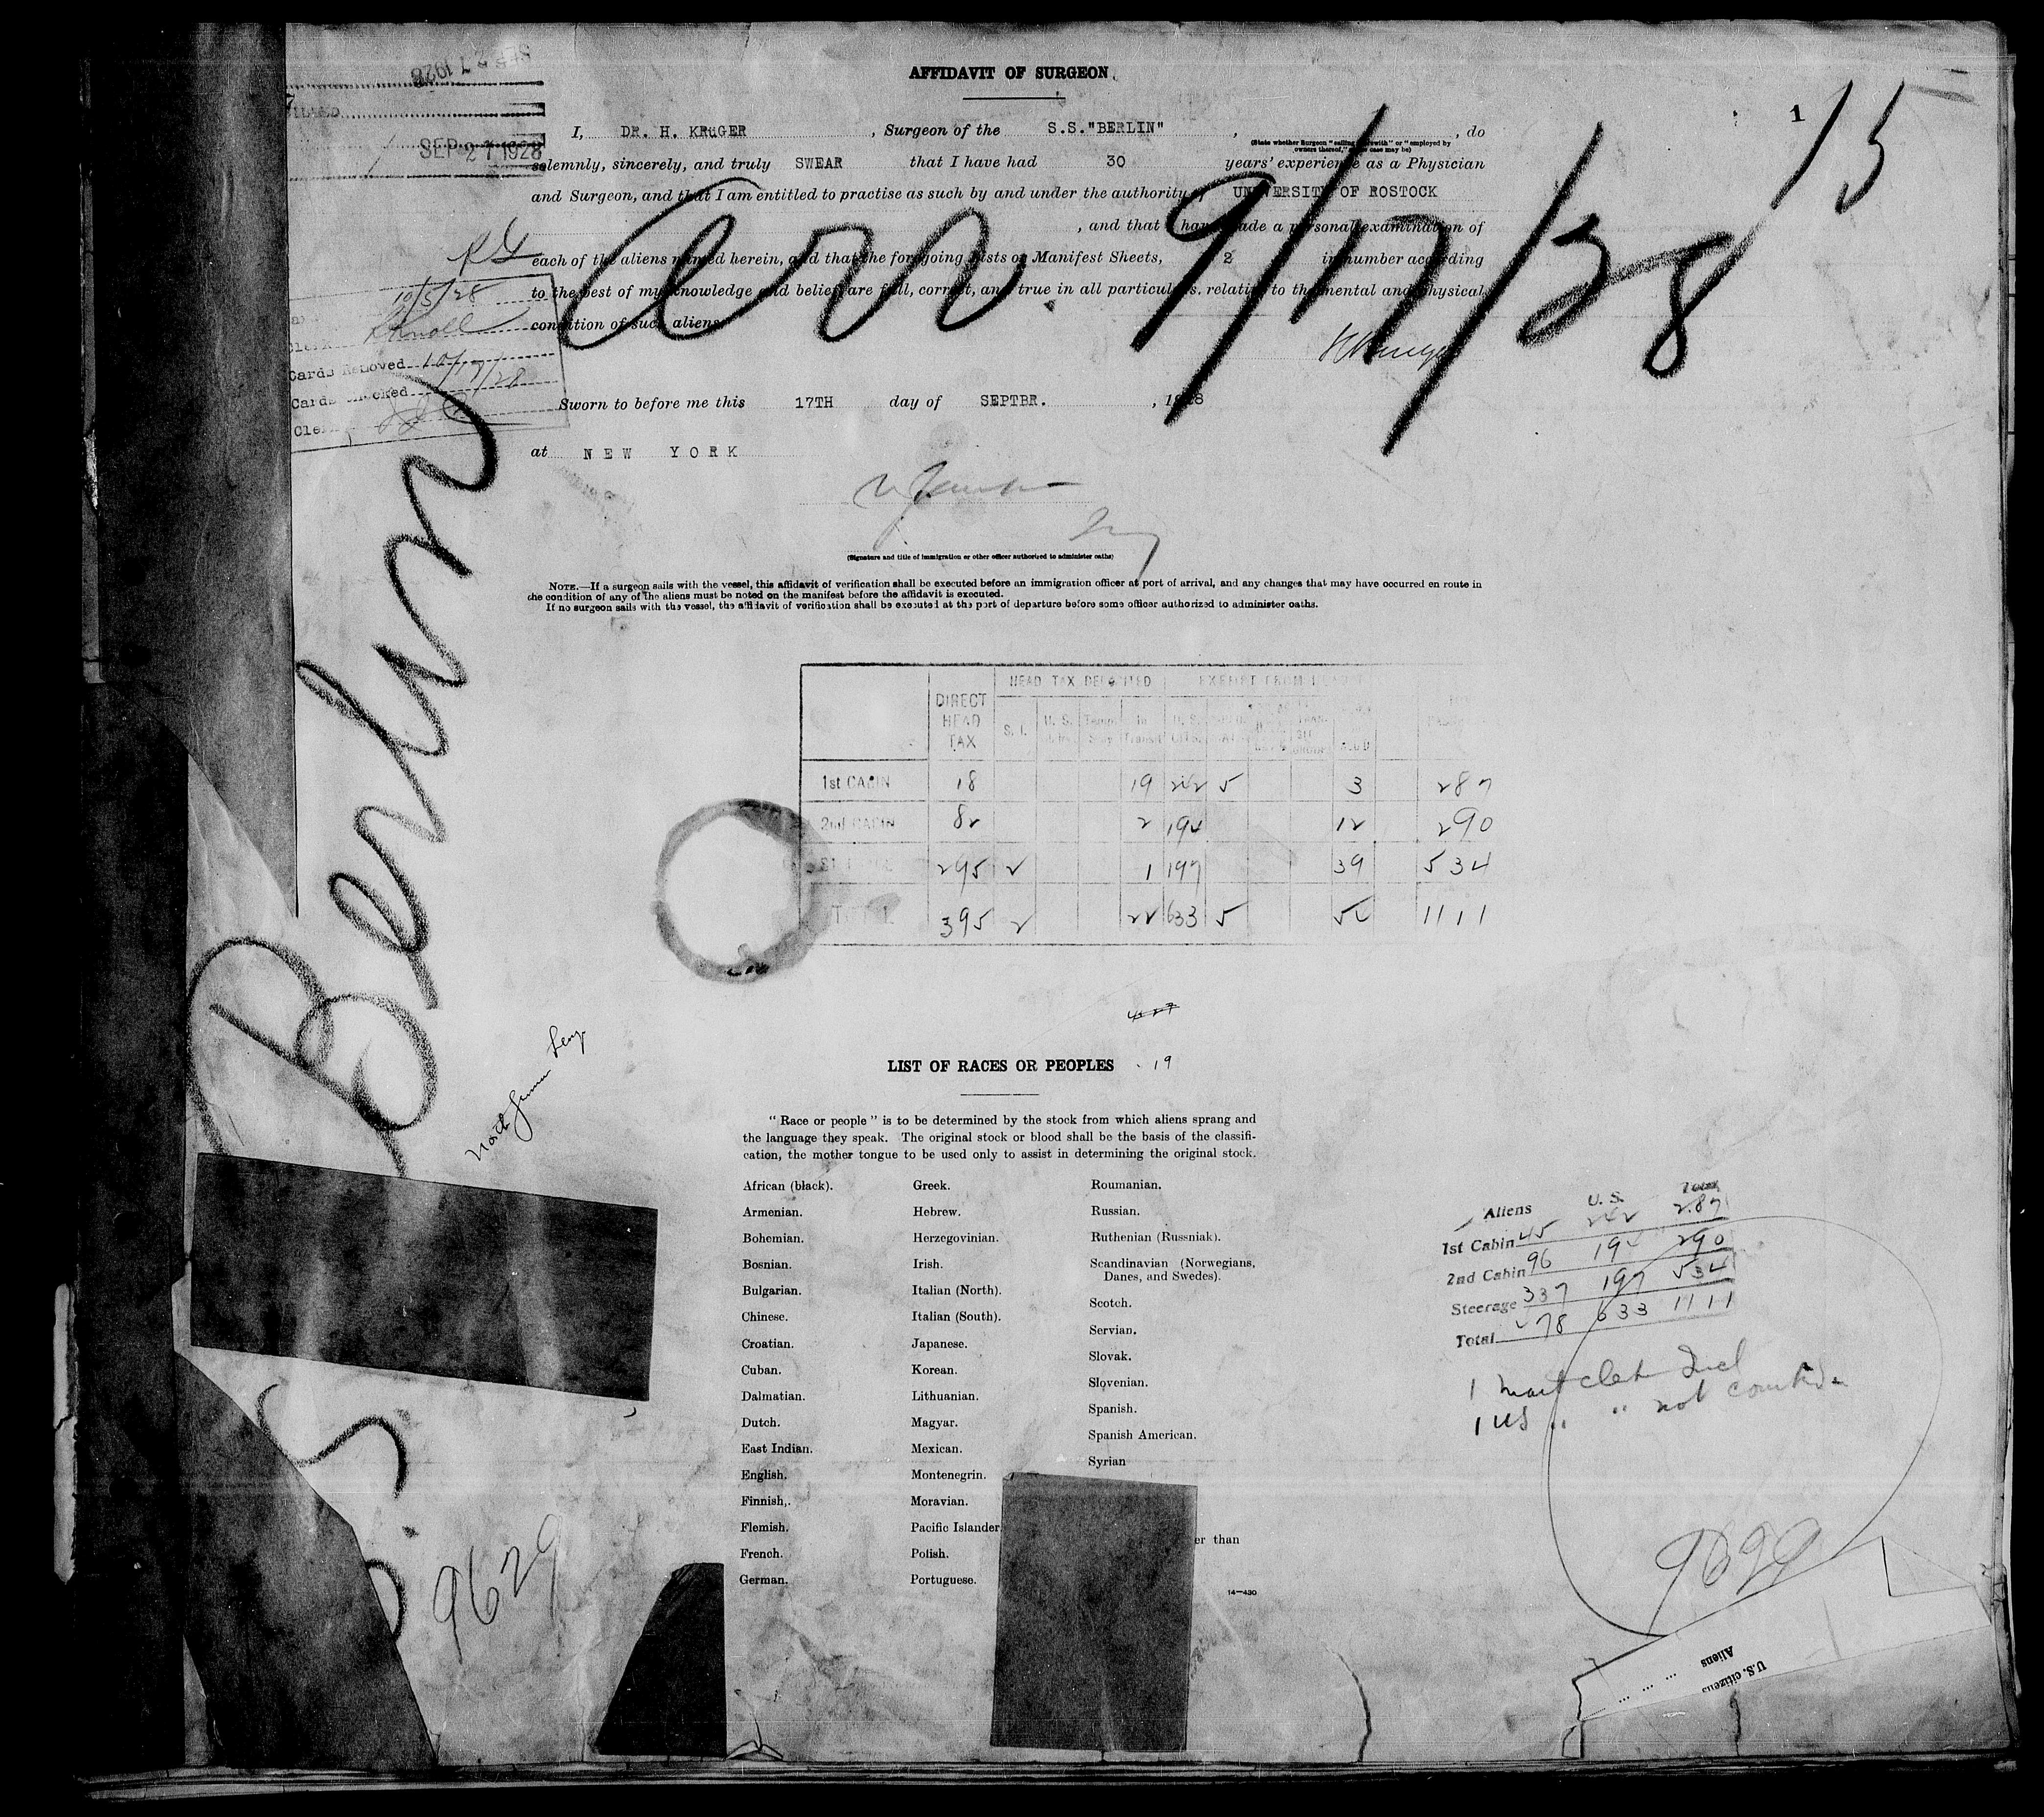 AFFIDAVIT OF SURGEON
1
15
SEP 27 1928
FILED
SEP 27 1928
I, DR. H. KRüGER , Surgeon of the S.S."BERLIN" , , do
(State whether Surgeon "sailing therewith" or "employed by
owners thereof," as the case may be)
solemnly, sincerely, and truly SWEAR that I have had 30 years' experience as a Physician
and Surgeon, and that I am entitled to practise as such by and under the authority of UNIVERSITY OF ROSTOCK
, and that I have made a personal examination of
each of the aliens named herein, and that the foregoing Lists or Manifest Sheets, 2 in number according
to the best of my knowledge and belief, are full, correct, and true in all particulars, relative to the mental and physical
condition of such aliens.
Arr. 9/17/28
HKruger
10/5/28
Clerk
Cards Removed 10/17/28
Cards Checked
Clerk
Sworn to before me this 17TH day of SEPTBR. , 1928
at NEW YORK
(Signature and title of immigration or other officer authorized to administer oaths)
NOTE.—If a surgeon sails with the vessel, this affidavit of verification shall be executed before an immigration officer at port of arrival, and any changes that may have occurred en route in
the condition of any of the aliens must be noted on the manifest before the affidavit is executed.
If no surgeon sails with the vessel, the affidavit of verification shall be executed at the port of departure before some officer authorized to administer oaths.
Berlin
HEAD TAX DEPOSITED EXEMPT FROM HEAD TAX
DIRECT HEAD TAX S. I. U. S. In Transit U. S.
1st CABIN 18 19 242 5 3 287
2nd CABIN 82 2 194 12 290
295 2 1 197 39 534
TOTAL 395 2 22 633 5 54 1111
North German Lloyd
LIST OF RACES OR PEOPLES
19
"Race or people" is to be determined by the stock from which aliens sprang and
the language they speak. The original stock or blood shall be the basis of the classifi-
cation, the mother tongue to be used only to assist in determining the original stock.
African (black).
Armenian.
Bohemian.
Bosnian.
Bulgarian.
Chinese.
Croatian.
Cuban.
Dalmatian.
Dutch.
East Indian.
English.
Finnish,.
Flemish.
French.
German.
Greek.
Hebrew.
Herzegovinian.
Irish.
Italian (North).
Italian (South).
Japanese.
Korean.
Lithuanian.
Magyar.
Mexican.
Montenegrin.
Moravian.
Pacific Islander.
Polish.
Portuguese.
Roumanian.
Russian.
Ruthenian (Russniak).
Scandinavian (Norwegians,
Danes, and Swedes).
Scotch.
Servian.
Slovak.
Slovenian.
Spanish.
Spanish American.
Syrian
er than
14—430
Aliens U. S. Total
1st Cabin 45 242 287
2nd Cabin 96 194 290
Steerage 337 197 534
Total 478 633 1111
1
1 US " " not counted
9629
9629
U.S. citizens ... ...
Aliens ... ...